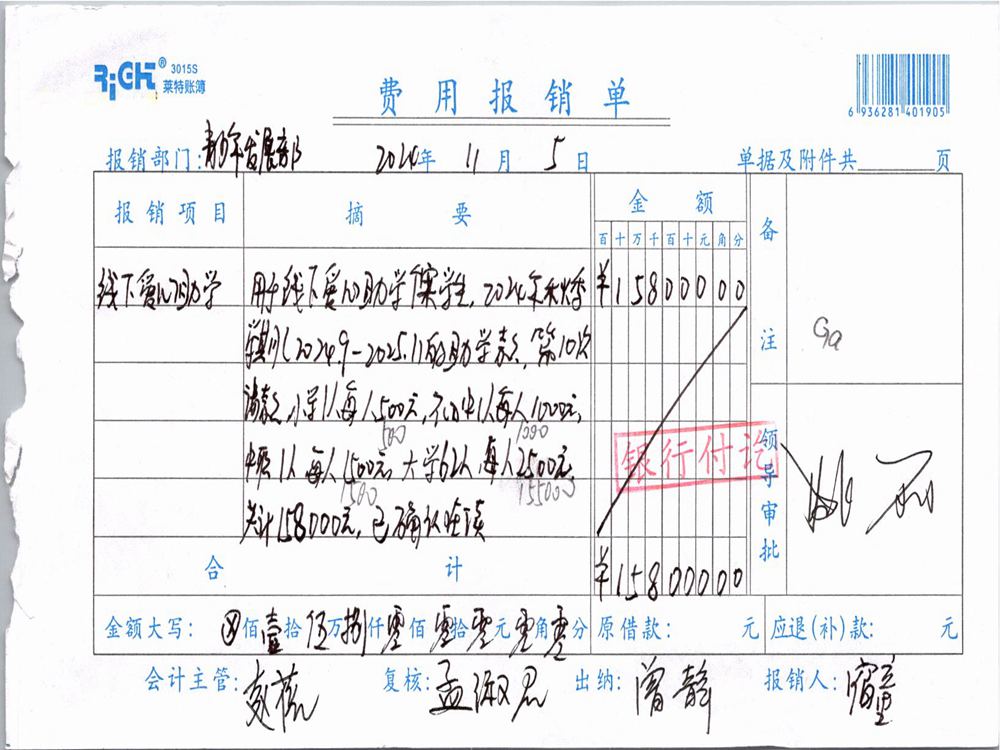 RiCH® 3015S
莱特账簿
费用报销单
6 936281 401905
报销部门: 青年发展部 2024年 11月 5日 单据及附件共 页
报销项目 摘要 金额 备注
百十万千百十元角分
线下爱心助学 用于线下爱心助学 学生,2024年秋季 ¥15800000
学期(2024.9-2025.1)的助学款,第10次
请款,小学1人每人500元,初中1人每人1000元,
500 1000
中职1人每人1500元,大学62人,每人2500元,
1500 155000
共计158000元,已确认在读
银行付讫
领导审批
合计 ¥15800000
金额大写: ⊗佰壹拾伍万捌仟零佰零拾零元零角零分 原借款: 元 应退(补)款: 元
会计主管: 复核: 孟淑君 出纳: 曾静 报销人: